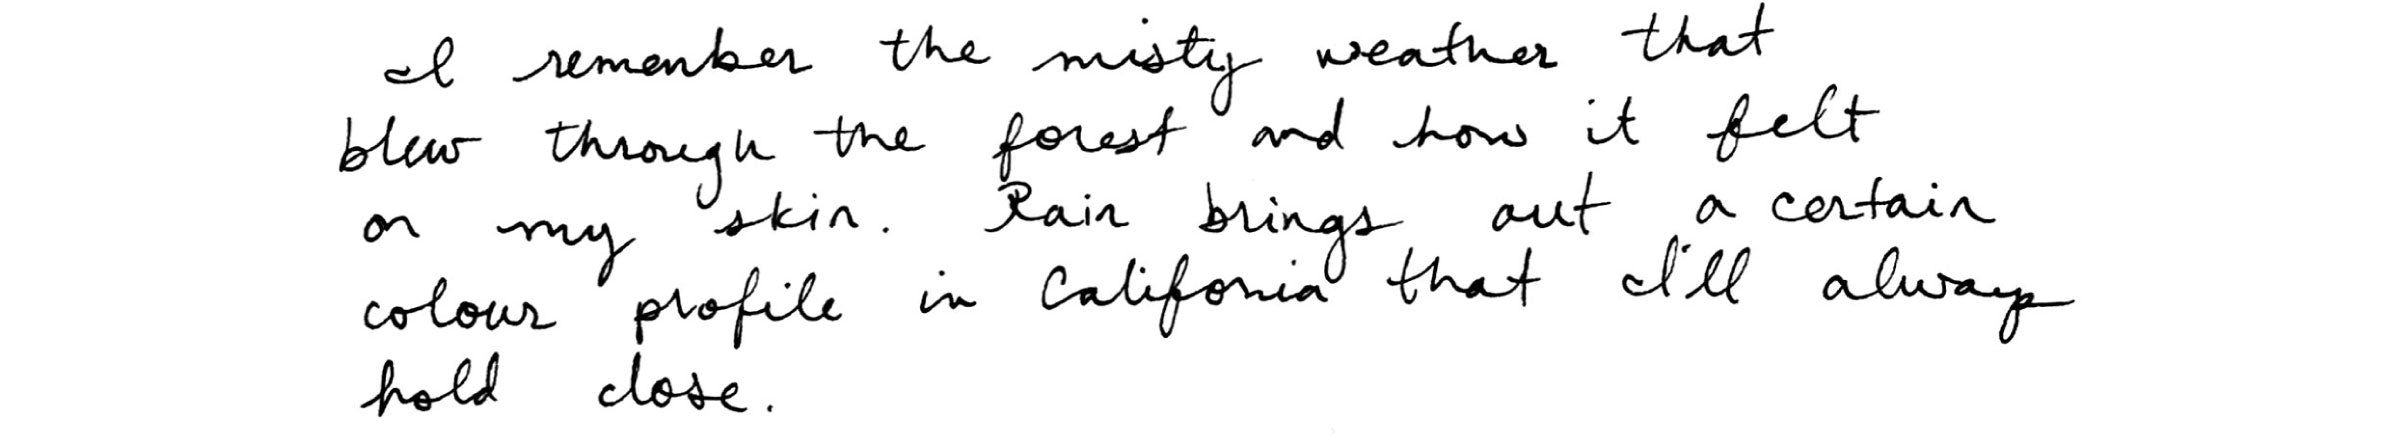 I remember the misty weather that
blew through the forest and how it felt
on my skin. Rain brings out a certain
colour profile in Califonia that I'll always
hold close.